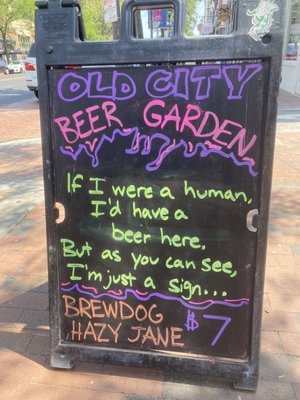 OLD CITY
BEER GARDEN
If I were a human,
I'd have a
beer here.
But as you can see,
I'm just a sign...
BREWDOG
HAZY JANE $7